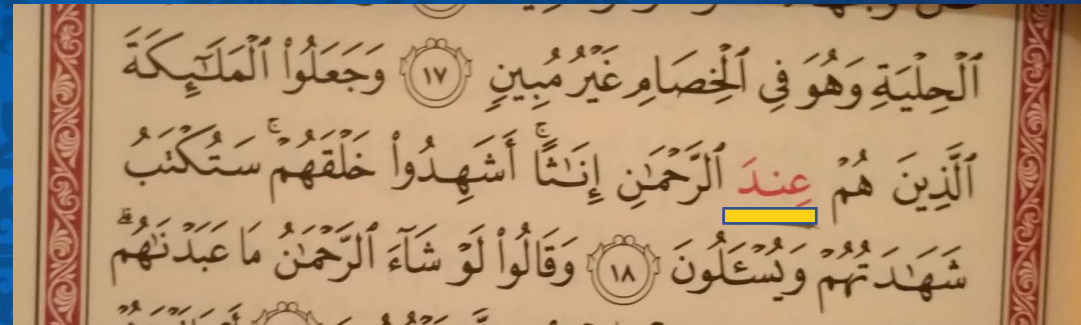 ٱلْحِلْيَةِ وَهُوَ فِي ٱلْخِصَامِ غَيْرُ مُبِينٍ ١٧ وَجَعَلُواْ ٱلْمَلَٰٓئِكَةَ
ٱلَّذِينَ هُمْ عِندَ ٱلرَّحْمَٰنِ إِنَٰثًاۚ أَشَهِدُواْ خَلْقَهُمْۚ سَتُكْتَبُ
شَهَٰدَتُهُمْ وَيُسْـَٔلُونَ ١٨ وَقَالُواْ لَوْ شَآءَ ٱلرَّحْمَٰنُ مَا عَبَدْنَٰهُمۗ